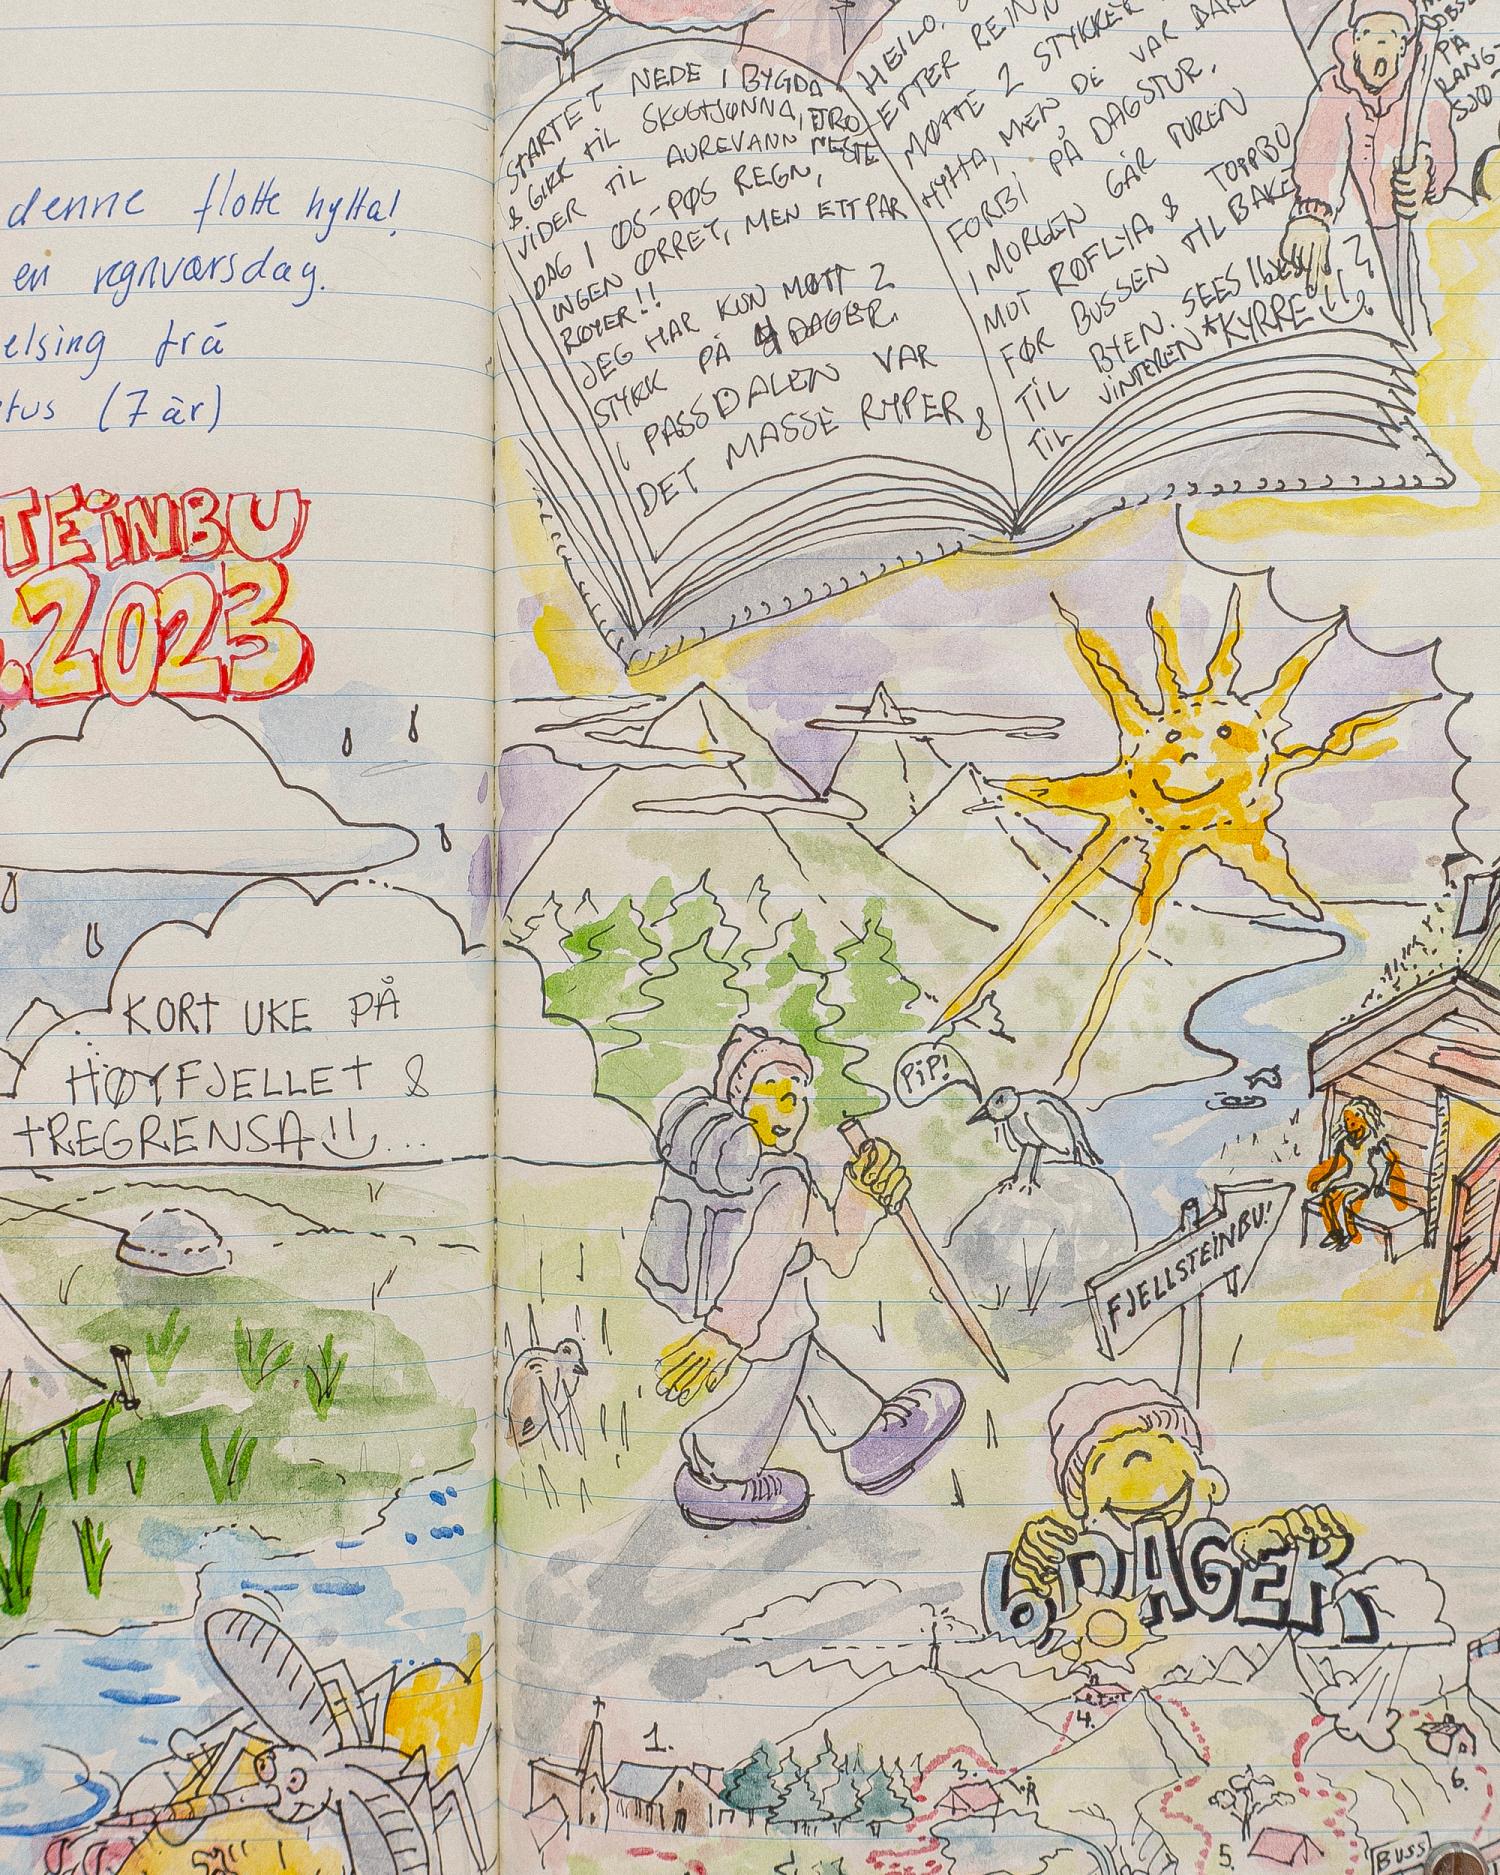 denne flotte hytta!
en regnværsdag.
elsing frå
tus (7 år)
TEINBU
.2023
KORT UKE PÅ
HØYFJELLET &
TREGRENSA!!
STARTET NEDE I BYGDA
& GIKK TIL SKOGTJØNNA,
VIDER TIL AUREVANN, NESTE
DAG I ØS-PØS REGN,
INGEN ØRRET, MEN ETT PAR
RØYER!!
JEG HAR KUN MØTT 2
STYKK PÅ 4 DAGER.
I PASSDALEN VAR
DET MASSE RYPER &
HEILO,
ETTER REIN
MØTTE 2 STYKKER
HYTTA, MEN DE VAR BARE
FORBI PÅ DAGSTUR.
I MORGEN GÅR TUREN
MOT RØFLYA & TOPPBU
FØR BUSSEN TILBAKE
TIL BYEN. SEES
TIL VINTEREN *KYRRE!!
PÅ
LANG-
SJØ
PIP!
FJELLSTEINBU!
6 DAGER
1.
3.
4.
5.
6.
BUSS